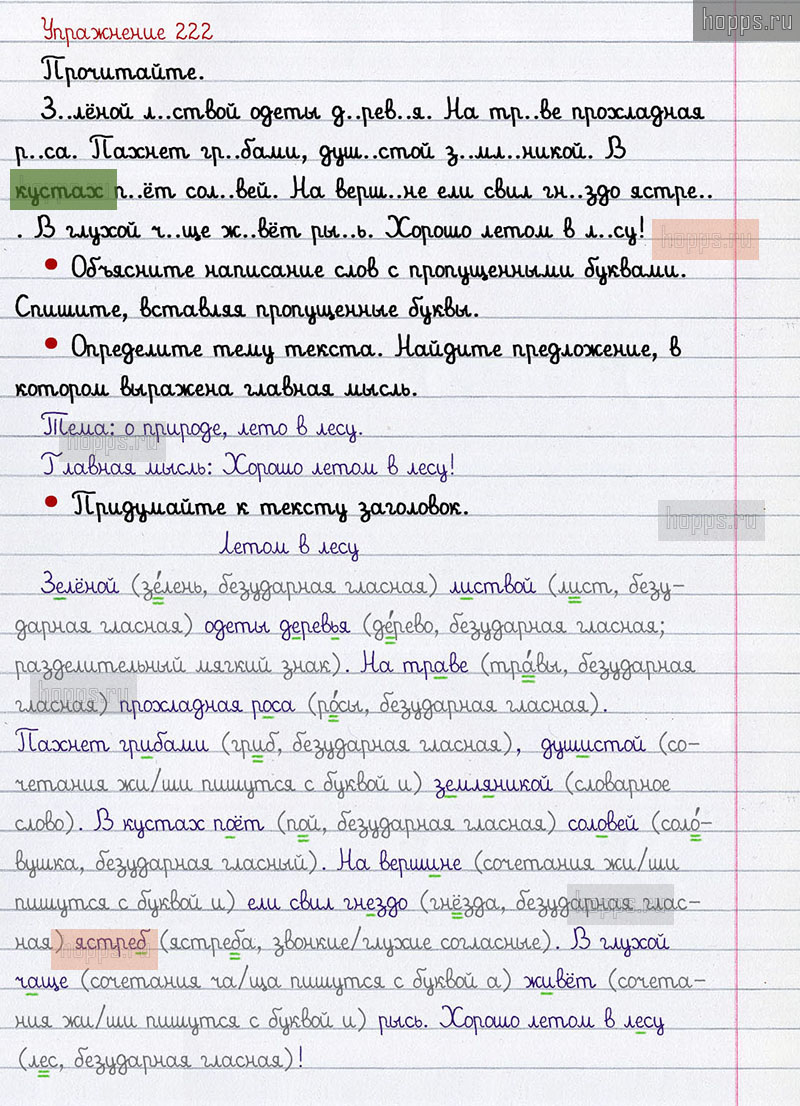 hopps.ru
Упражнение 222
Прочитайте.
З..лёной л..ствой одеты д..рев..я. На тр..ве прохладная
р..са. Пахнет гр..бами, душ..стой з..мл..никой. В
кустах п..ёт сол..вей. На верш..не ели свил гн..здо ястре..
. В глухой ч..ще ж..вёт ры..ь. Хорошо летом в л..су!
hopps.ru
• Объясните написание слов с пропущенными буквами.
Спишите, вставляя пропущенные буквы.
• Определите тему текста. Найдите предложение, в
котором выражена главная мысль.
Тема: о природе, лето в лесу.
hopps.ru
Главная мысль: Хорошо летом в лесу!
• Придумайте к тексту заголовок.
hopps.ru
Летом в лесу
Зелёной (зе́лень, безударная гласная) листвой (лист, безу-
дарная гласная) одеты деревья (де́рево, безударная гласная;
разделительный мягкий знак). На траве (тра́вы, безударная
hopps.ru
гласная) прохладная роса (ро́сы, безударная гласная).
Пахнет грибами (гриб, безударная гласная), душистой (со-
четания жи/ши пишутся с буквой и) земляникой (словарное
слово). В кустах поёт (пой, безударная гласная) соловей (соло́-
вушка, безударная гласный). На вершине (сочетания жи/ши
пишутся с буквой и) ели свил гнездо (гнёзда, безударная глас-
hopps.ru
ная) ястреб (ястреба, звонкие/глухие согласные). В глухой
hopps.ru
чаще (сочетания ча/ща пишутся с буквой а) живёт (сочета-
ния жи/ши пишутся с буквой и) рысь. Хорошо летом в лесу
(лес, безударная гласная)!